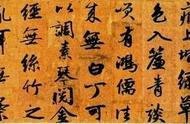 色入簾青談
笑有鴻儒往
来無白丁可
以調素琴閱金
經無絲竹之
亂耳無案